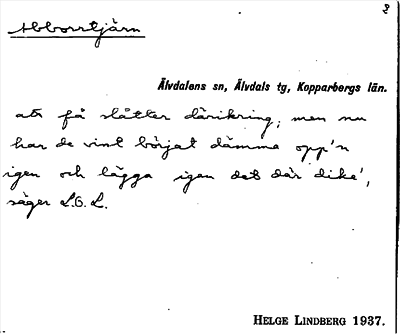 2
Abborrtjärn
Älvdalens sn, Älvdals tg, Kopparbergs län.
att få slåtter däri kring, men nu
har de vint börjat dämma opp'n
igen och lägga igen det där dike',
säger L.G.L.
HELGE LINDBERG 1937.